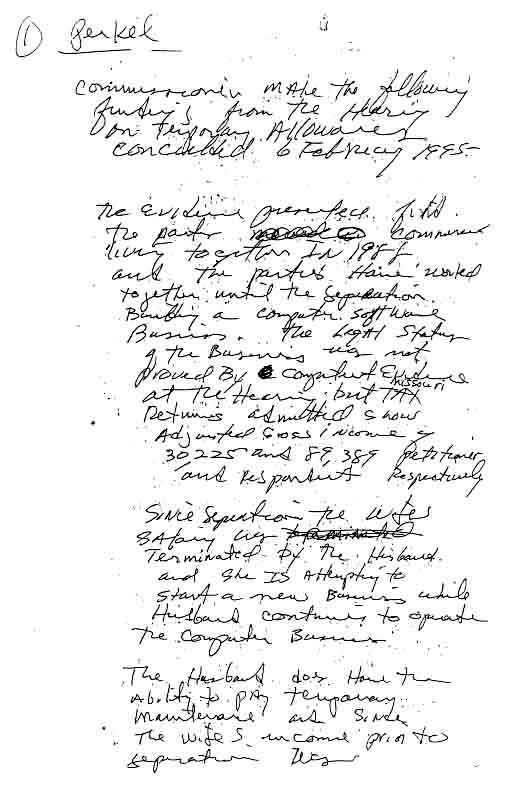 ① Perkel
Commissioner make the following
findings from the Hearing
on Temporary Allowances
concluded 6 February 1995
The Evidence presented find
the parties commenced
living together In 1988
and the parties Have worked
together until the separation
Building a computer software
Business. The Legal Status
of the Business was not
proved By competent Evidence
at the Hearing but Missouri TAX
Returns admitted show
Adjusted Gross income of
30225 and 89,389 Petitioner
and Respondent Respectively
Since Separation the wifes
salary was terminated
Terminated by the Husband
and she Is Attempting to
start a new Business while
Husband continues to operate
the Computer Business
The Husband does Have the
Ability to pay temporary
Maintenance and Since
The wife's income prior to
separation was